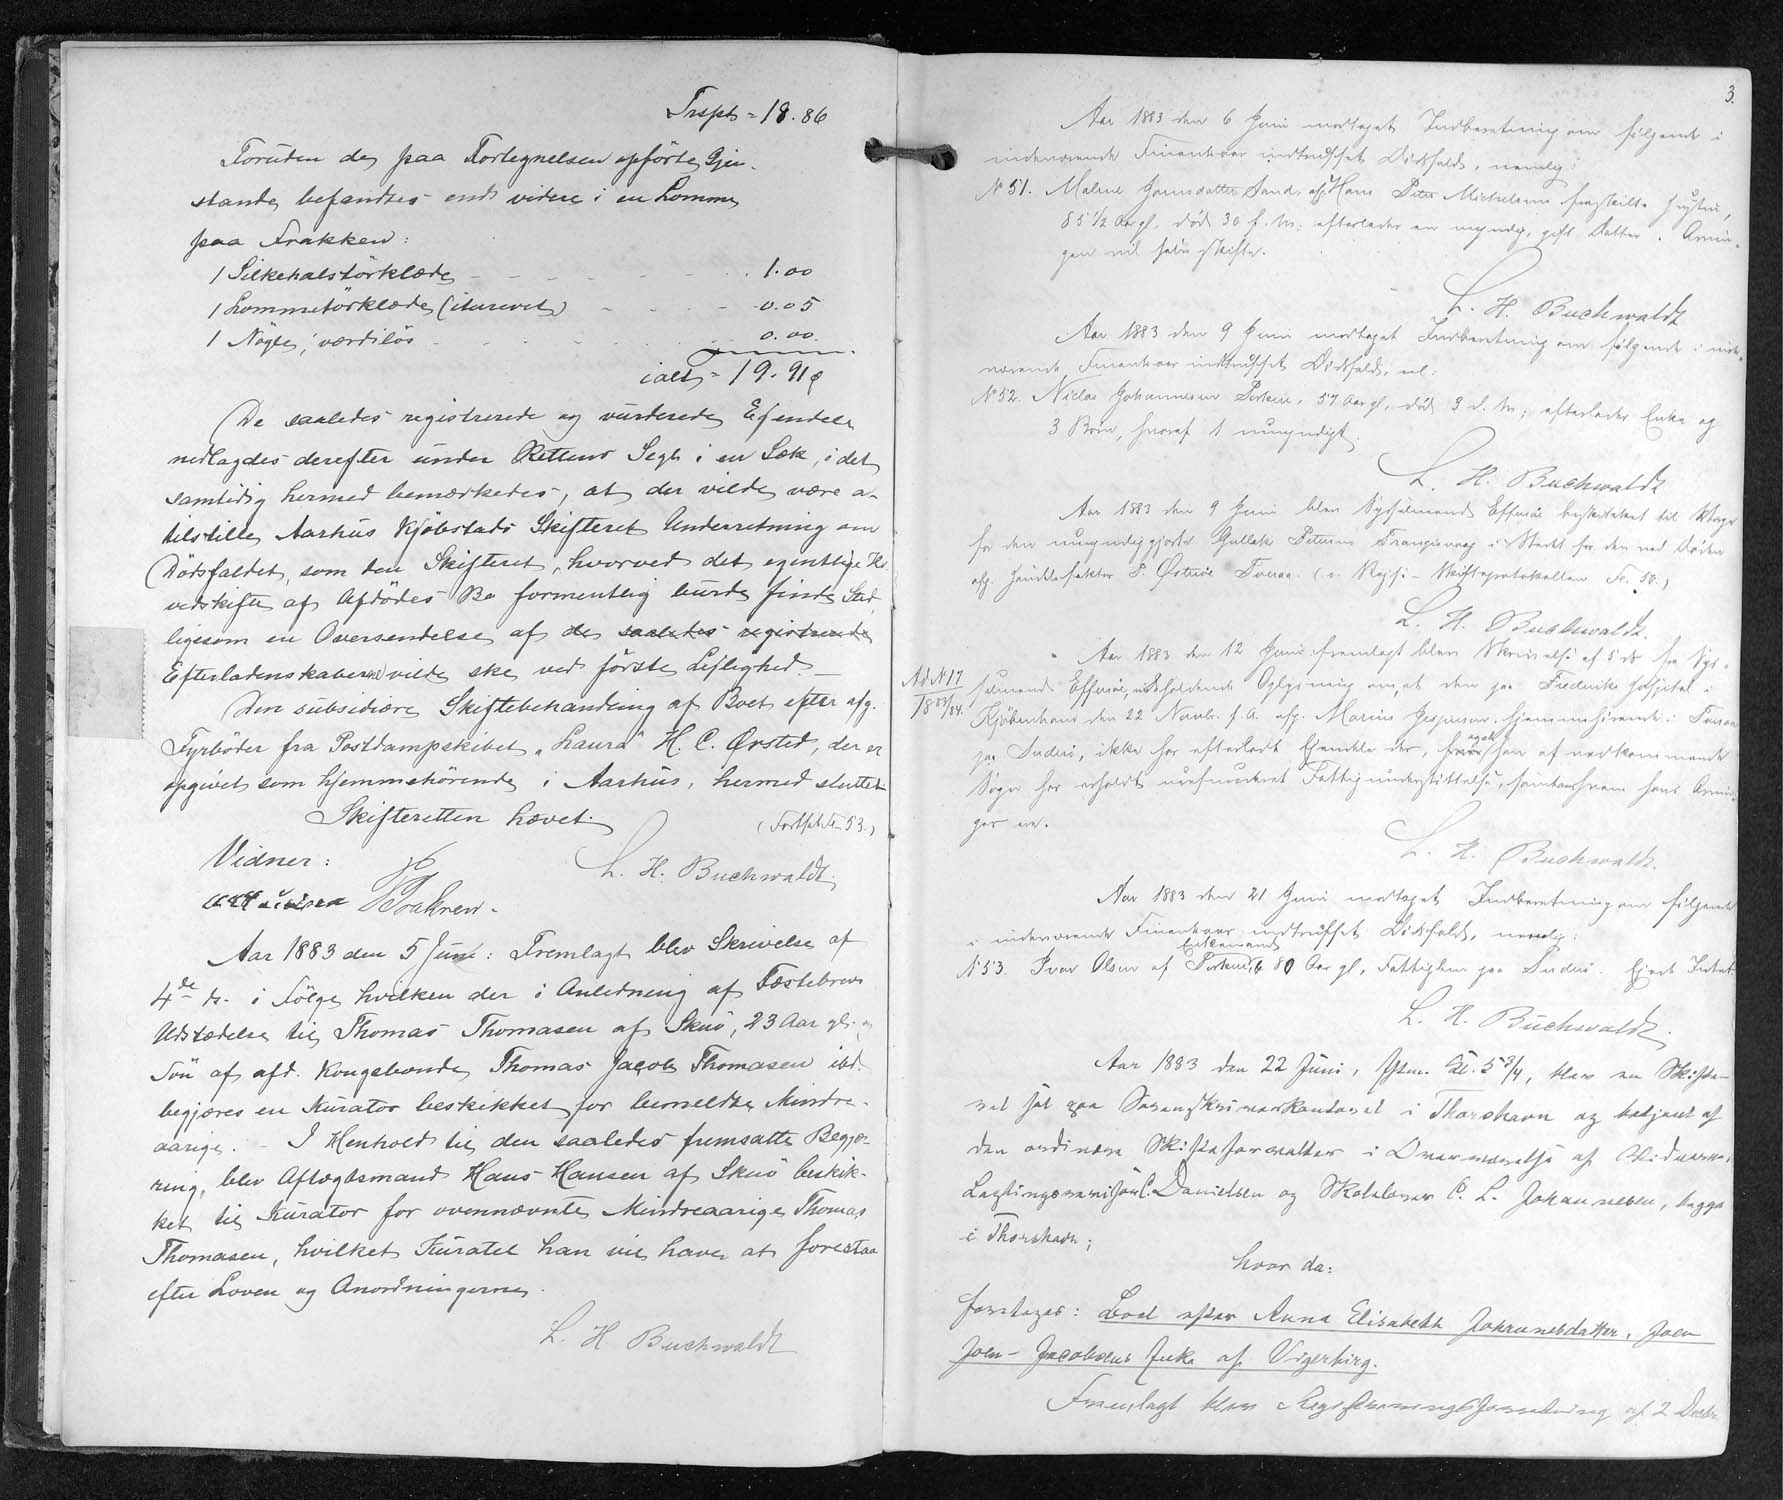 Trspt = 18.86
Foruden de paa Fortegnelsen opførte Gjen-
stande befandtes endv videre i en Lomme
paa Frakken:
1 Silkehalstørklæde 1.00
1 Lommetørklæde (iturevet) 0.05
1 Nøgle, værdiløs 0.00.
ialt = 19.91
De saaledes registrerede og vurderede Ejendele
nedlagdes derefter under Rettens Segl i en Sæk, idet
samtidig hermed bemærkedes, at der vilde være a-
tilstille Aarhus Kjøbstads Skifteret Underretning om
Dødsfaldet, som den Skifteret, hvorved det egentlige Ho-
vedskifte af Afdødes Bo formentlig burde finde Sted,
ligesom en Oversendelse af de saaledes registrerede
Efterladenskaber vilde ske ved første Lejlighed. —
Den subsidiære Skiftebehandling af Boet efter afg.
Fyrbøder fra Postdampskibet „Laura" H. C. Ørsted, der er
opgivet som hjemmehørende i Aarhus, hermed sluttet
Skifteretten hævet.
(Fortsat Fo. 53.)
Vidner:
L. H. Buchwaldt.
Aar 1883 den 5 Juni: Fremlagt blev Skrivelse af
4de ds. i Følge hvilken der i Anledning af Fæstebrevs
Udstædelse til Thomas Thomasen af Skuø, 23 Aar gl. og
Søn af afd. Kongsbonde Thomas Jacob Thomasen ibd.
begjæres en Kurator beskikket for bemeldte Mindre-
aarige. - I Henhold til den saaledes fremsatte Begjæ-
ring, blev Aftægtsmand Hans Hansen af Skuø beskik-
ket til Kurator for ovennævnte Mindreaarige Thomas
Thomasen, hvilket Kuratel han vil have at forestaa
efter Loven og Anordningerne.
L. H. Buchwaldt
3.
Aar 1883 den 6 Juni modtaget Indberetning om følgende i
indeværende Finantsaar indtruffet Dødsfald, nemlig:
No 51. Malene Joensdatter Sand, afg. Hans Peter Michelsens fraskilte Hustru,
85 1/2 Aar gl. død 30 f. M.; efterlader en myndig, gift Datter. Arvin-
gen vil selv skifte.
L. H. Buchwaldt
Aar 1883 den 9 Juni modtaget Indberetning om følgende i inde-
værende Finantsaar indtruffet Dødsfald, nl:
No 52. Niclas Johannesen Porkere, 57 Aar gl., død 3 d. M.; efterlader Enke og
3 Børn, hvoraf 1 umyndigt.
L. H. Buchwaldt
Aar 1883 den 9 Juni blev Sysselmand Effersøe beskikket til Værge
for den umyndiggjorte Gullak Petersen Frangisvaag i Stedet for den ved Døden
afg. Handelsfaktor P. Østerøe Tveraa. (v. Rejse-Skifteprotokollen Fo. 50.)
L. H. Buchwaldt.
Ad No 17
1883/84.
Aar 1883 den 12 Juni fremlagt blev Skrivelse af 5 ds fra Sys-
selmand Effersøe, indeholdende Oplysning om, at den paa Frederiks Hospital i
Kjøbenhavn den 22 Novbr. f. A. afg. Marius Jespersen hjemmehørende i Tveraa
paa Suderø, ikke har efterladt Ejendele der, hvor han af vedkommende
Sogn har erholdt Fattigunderstøttelse, samt hvem hans Arvin-
ger ere.
L. H. Buchwaldt.
Aar 1883 den 21 Juni modtaget Indberetning om følgende
i indeværende Finantsaar indtruffet Dødsfald, nemlig:
Enkemand
No 53. Ivar Olsen af Porkere, 80 Aar gl, Fattiglem paa Suderø. Ejede Intet.
L. H. Buchwaldt.
Aar 1883 den 22 Juni, Eftm. Kl. 5 3/4, blev en Skifte-
ret sat paa Sorenskriverkontoret i Thorshavn og betjent af
den ordinære Skifteforvalter i Overværelse af Vidnerne
Lagtingsrevisor C. Danielsen og Skolelærer C. L. Johannesen, begge
i Thorshavn;
hvor da:
foretages: Boet efter Anna Elisabeth Johannesdatter, Joen
Joen-Jacobsens Enke af Vigerbirg.
Fremlagt blev Registreringsforretning af 2 Decbr.